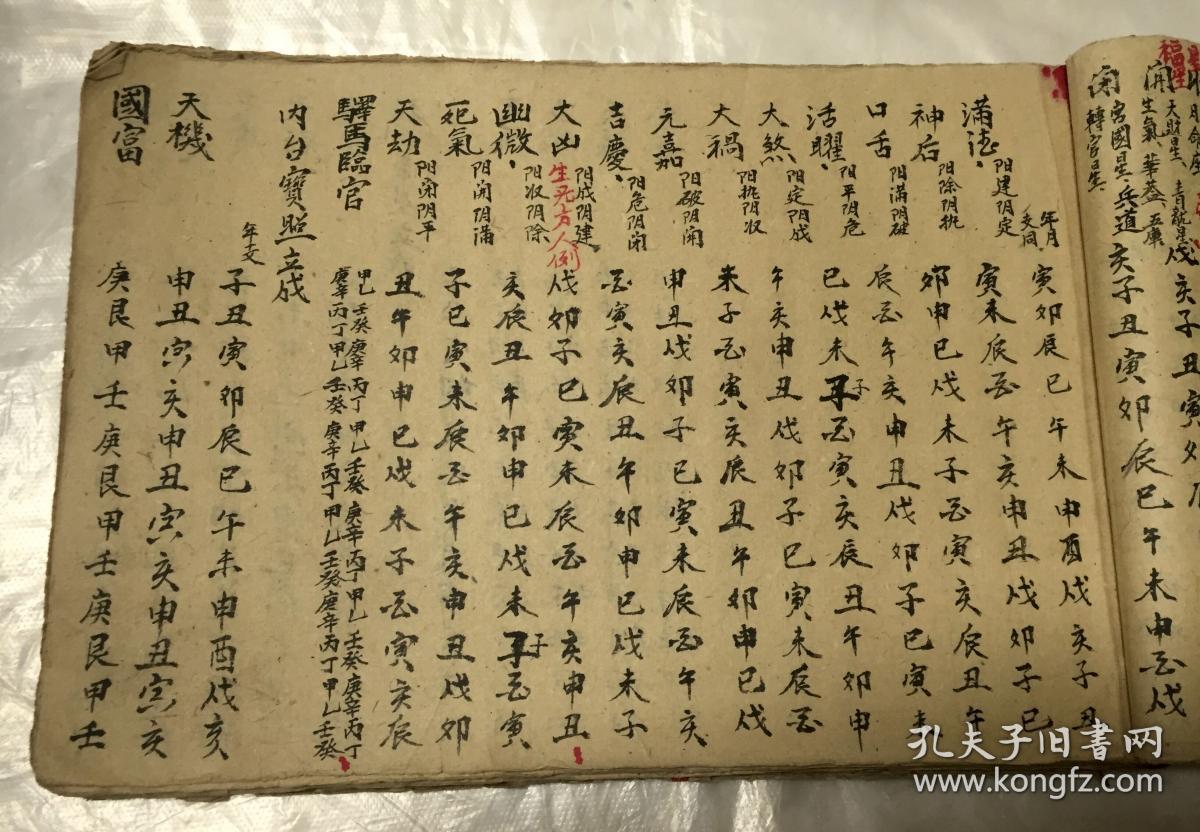 開 生氣 華蓋 五庫
大財星 青龍星
福生
闭 富國星 兵道 亥子丑寅卯辰巳午未申酉戌
轉官星
年月支同 寅卯辰巳午未申酉戌亥子丑
满德 阳建阴定 寅未辰酉午亥申丑戌卯子巳
神后 阳除阴执 卯申巳戌未子酉寅亥辰丑午
口舌 阳满阴破 辰酉午亥申丑戌卯子巳寅未
活曜 阳平阴危 巳戌未子酉寅亥辰丑午卯申
大煞 阳定阴成 午亥申丑戌卯子巳寅未辰酉
大禍 阳执阴收 未子酉寅亥辰丑午卯申巳戌
元嘉 阳破阴開 申丑戌卯子巳寅未辰酉午亥
吉慶 阳危阴闭 酉寅亥辰丑午卯申巳戌未子
大凶 阳成阴建 戌卯子巳寅未辰酉午亥申丑
生死方人例
幽微 阳收阴除 亥辰丑午卯申巳戌未子酉寅
死氣 阳開阴满 子巳寅未辰酉午亥申丑戌卯
天劫 阳闭阴平 丑午卯申巳戌未子酉寅亥辰
驛馬臨官 甲乙壬癸庚辛丙丁甲乙壬癸庚辛丙丁甲乙壬癸庚辛丙丁
庚辛丙丁甲乙壬癸庚辛丙丁甲乙壬癸庚辛丙丁甲乙壬癸
内台寶照立成
年支 子丑寅卯辰巳午未申酉戌亥
天機 申丑寅亥申丑寅亥申丑寅亥
國富 庚艮甲壬庚艮甲壬庚艮甲壬
孔夫子旧书网
www.kongfz.com